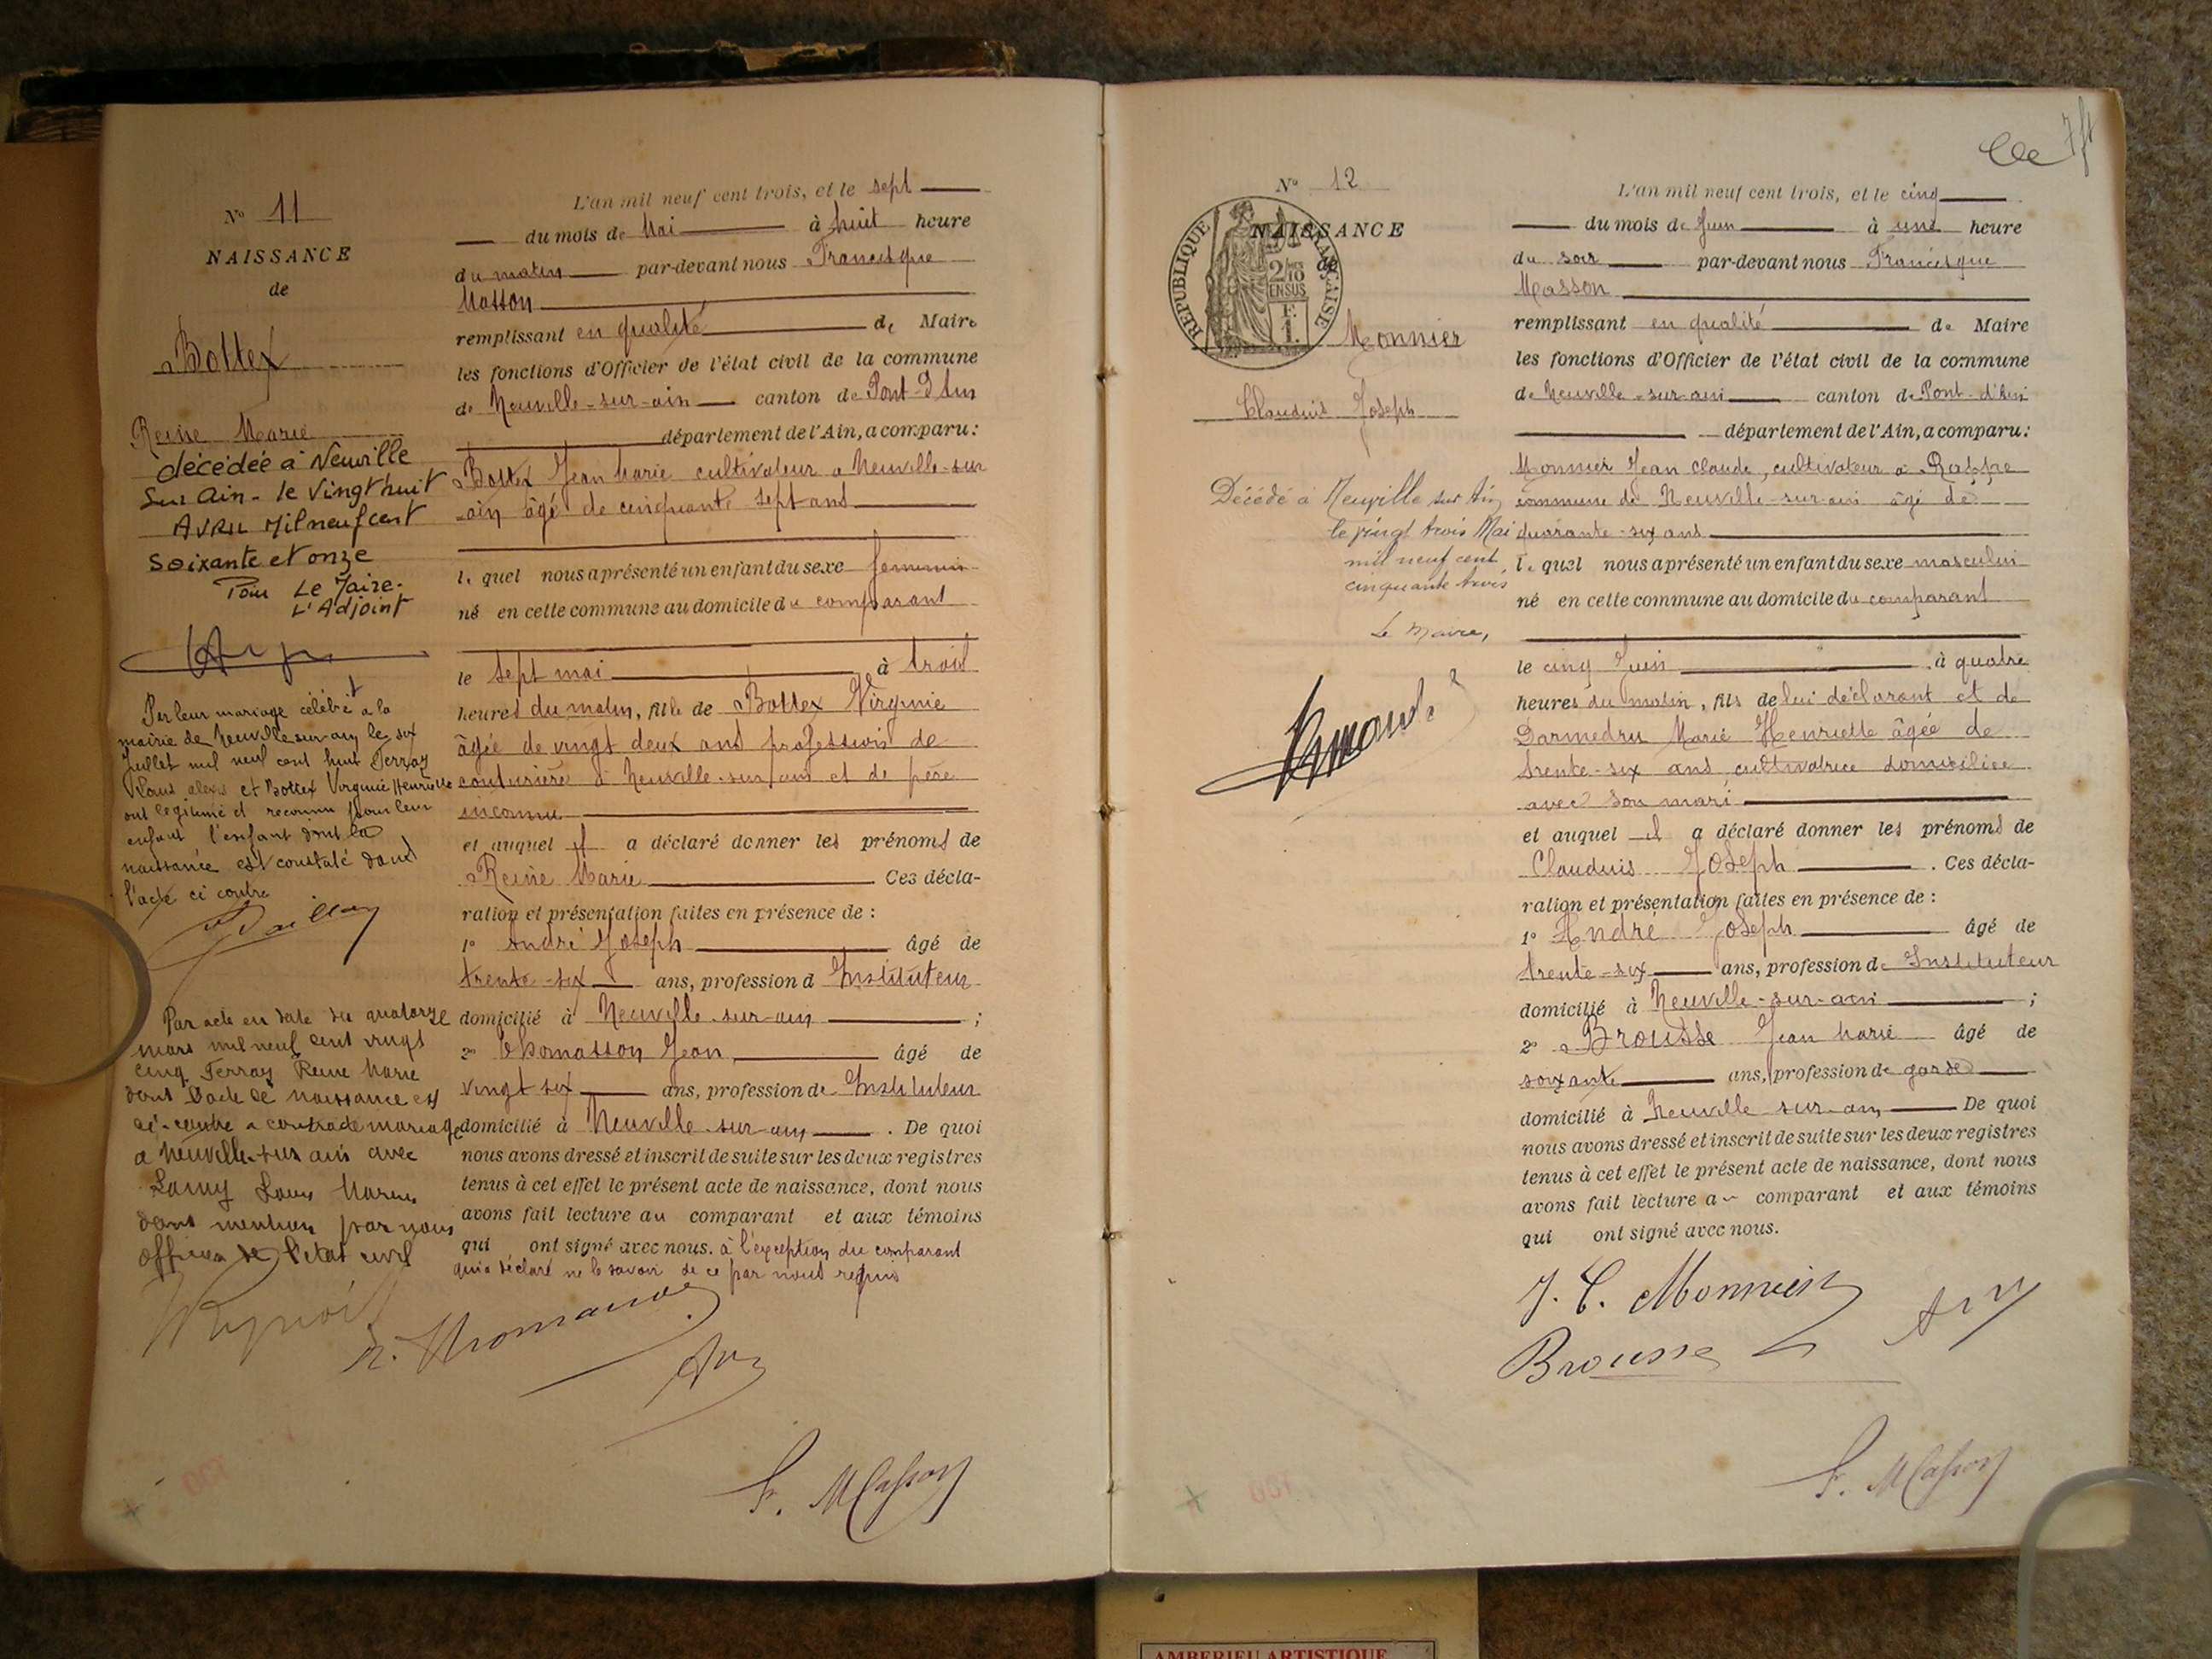 N° 11
NAISSANCE
de
Bottex
Reine Marie
décédée à Neuville
Sur Ain - le Vingt huit
AVRIL Mil neuf cent
Soixante et onze
Pour Le Maire.
L'Adjoint
Par leur mariage célébré à la
mairie de Neuville sur ain le six
Juillet mil neuf cent huit Ferray
alexis et Bottex Virginie Henriette
ont légitimé et reconnu pour leur
enfant l'enfant dont la
naissance est constaté dans
l'acte ci contre
Par acte en date du quatorze
mars mil neuf cent vingt
cinq Ferray Reine Marie
dont l'acte de naissance est
ci-contre a contracté mariage
a Neuville-sur ain avec
Lamy Louis
dont mention par nous
officier de l'état civil
L'an mil neuf cent trois, et le sept
du mois de Mai à huit heure
du matin par-devant nous Francisque
Masson
remplissant en qualité de Maire
les fonctions d'Officier de l'état civil de la commune
de Neuville-sur-ain canton de Pont-d'Ain
département de l'Ain, a comparu:
Bottex Jean Marie cultivateur a Neuville-sur
-ain âgé de cinquante sept ans
le quel nous a présenté un enfant du sexe feminin
né en cette commune au domicile du comparant
le sept mai à trois
heures du matin, fille de Bottex Virginie
âgée de vingt deux ans profession de
couturière à Neuville-sur-ain et de père
inconnu
et auquel il a déclaré donner les prénoms de
Reine Marie Ces décla-
ration et présentation faites en présence de :
1° André Joseph âgé de
trente-six ans, profession d Instituteur
domicilié à Neuville-sur-ain ;
2° Thomasson Jean âgé de
vingt six ans, profession de Instituteur
domicilié à Neuville-sur-ain . De quoi
nous avons dressé et inscrit de suite sur les deux registres
tenus à cet effet le présent acte de naissance, dont nous
avons fait lecture au comparant et aux témoins
qui ont signé avec nous. à l'exception du comparant
qui a déclaré ne le savoir de ce par nous requis
F. Masson
N° 12
NAISSANCE
de
REPUBLIQUE FRANÇAISE
2/10
EN SUS
F.
1.
Monnier
Claudius Joseph
Décédé à Neuville sur Ain
le vingt trois Mai
mil neuf cent
cinquante trois
Le Maire,
L'an mil neuf cent trois, et le cinq
du mois de Juin à une heure
du soir par-devant nous Francisque
Masson
remplissant en qualité de Maire
les fonctions d'Officier de l'état civil de la commune
de Neuville-sur-ain canton de Pont-d'Ain
département de l'Ain, a comparu:
Monnier Jean Claude, cultivateur a
commune de Neuville-sur-ain âgé de
quarante-six ans
le quel nous a présenté un enfant du sexe masculin
né en cette commune au domicile du comparant
le cinq Juin à quatre
heures du matin, fils de lui déclarant et de
Darmedru Marie Henriette âgée de
trente-six ans cultivatrice domiciliée
avec son mari
et auquel il a déclaré donner les prénoms de
Claudius Joseph . Ces décla-
ration et présentation faites en présence de :
1° André Joseph âgé de
trente-six ans, profession de Instituteur
domicilié à Neuville-sur-ain ;
2° Brousse Jean Marie âgé de
soixante ans, profession de garde
domicilié à Neuville-sur-ain De quoi
nous avons dressé et inscrit de suite sur les deux registres
tenus à cet effet le présent acte de naissance, dont nous
avons fait lecture au comparant et aux témoins
qui ont signé avec nous.
J. C. Monnier
Brousse
F. Masson
AMBERIEU ARTISTIQUE